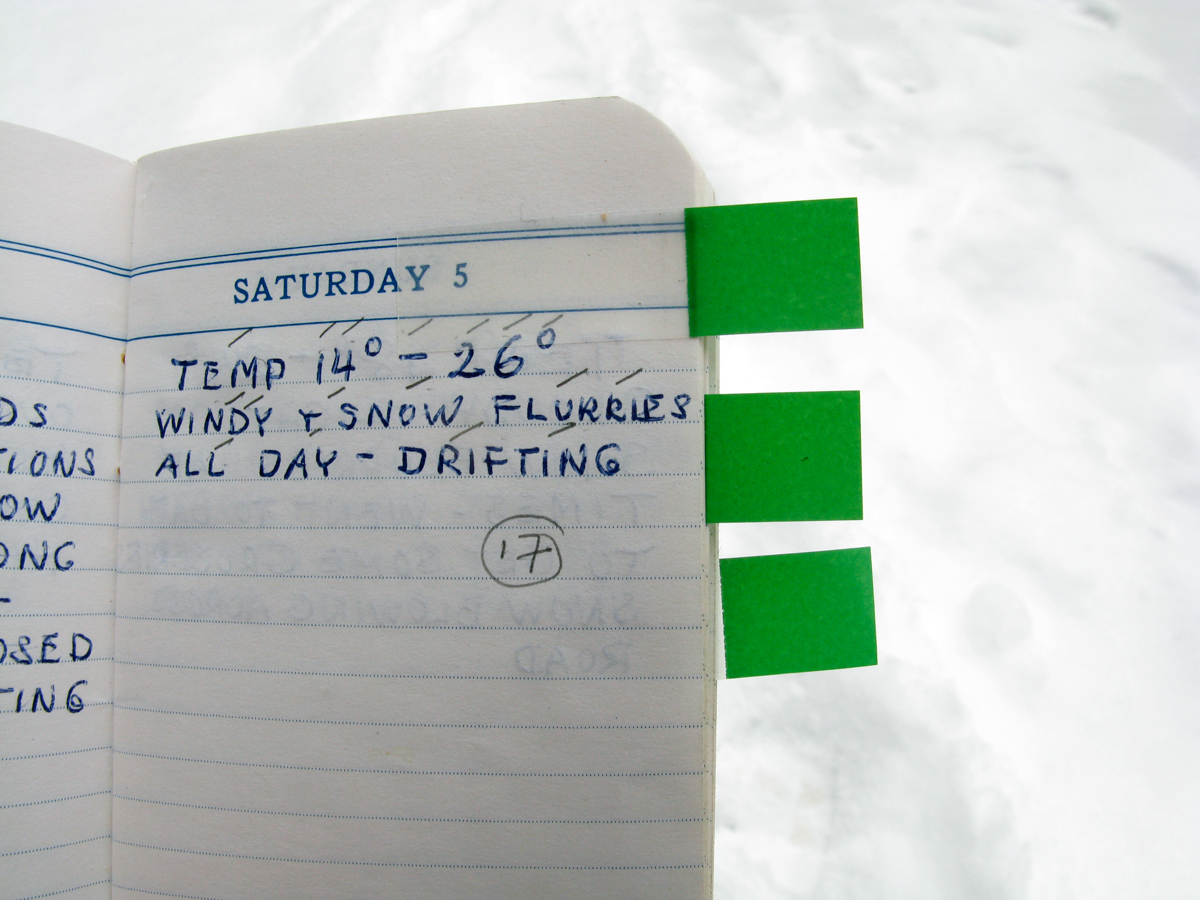 SATURDAY 5
TEMP 14° - 26°
WINDY + SNOW FLURRIES
ALL DAY - DRIFTING
17
DS
TIONS
OW
ONG
OSED
TING